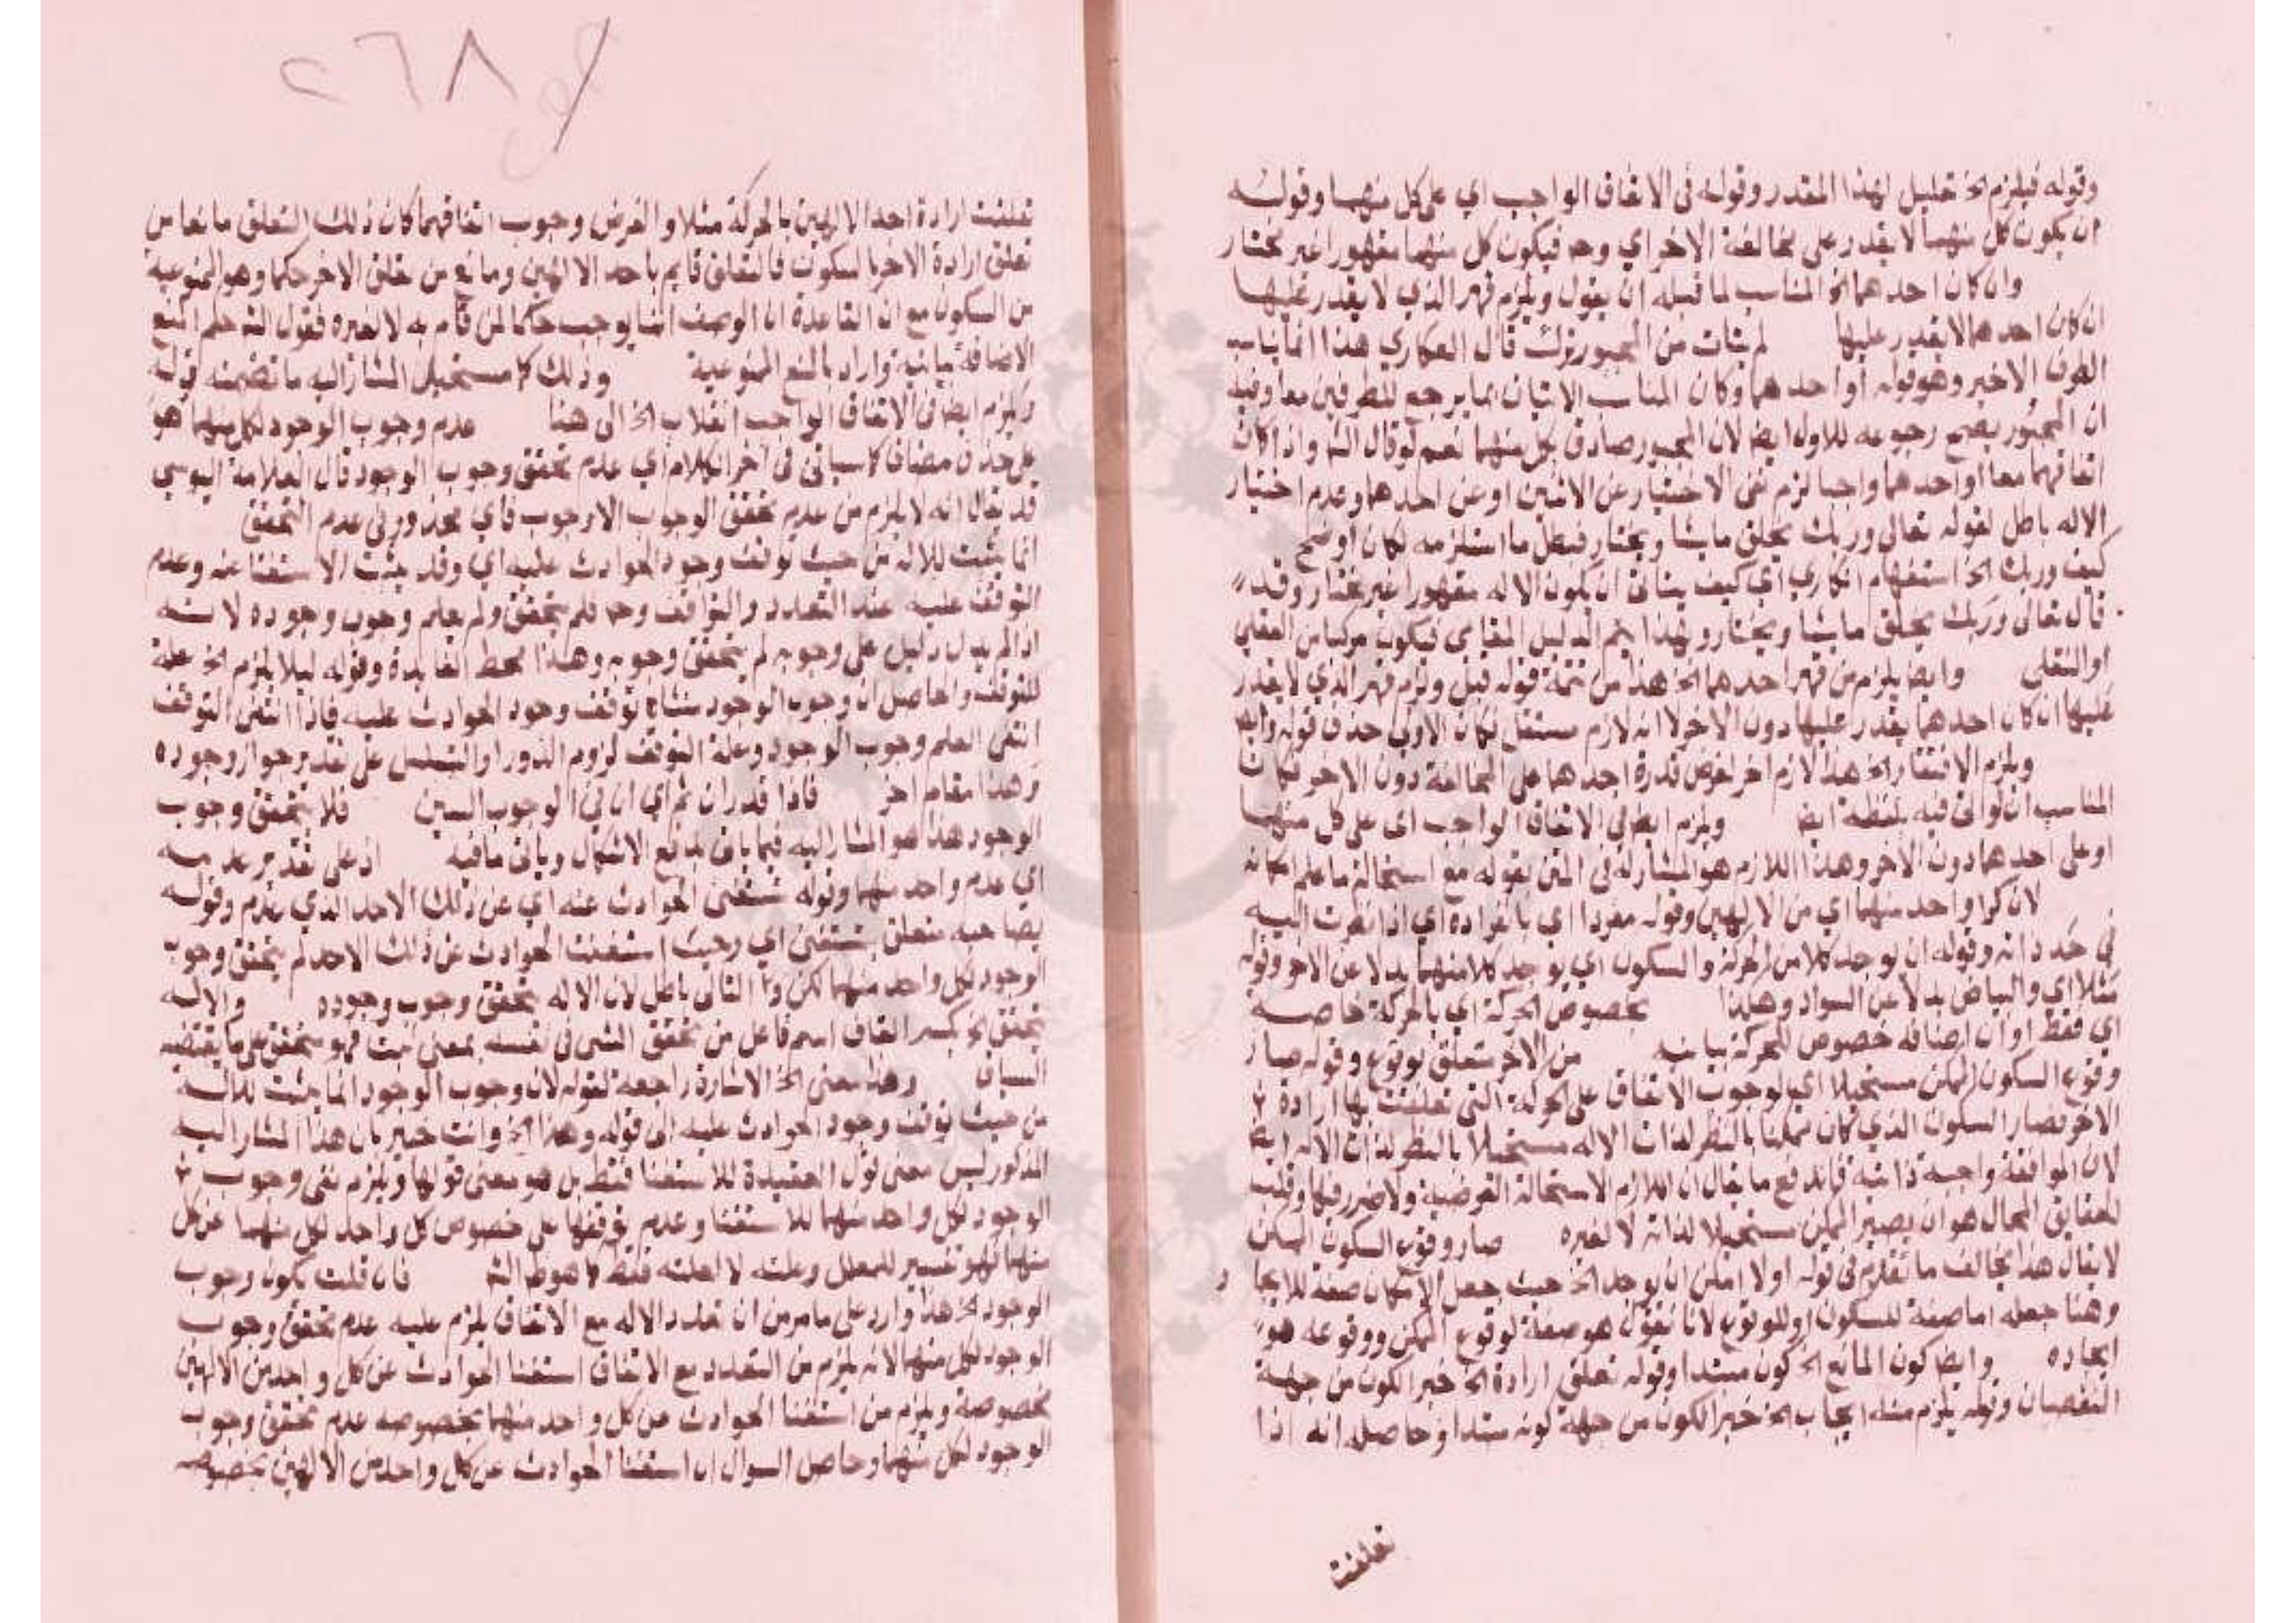 وقوله فيلزم الخ تعليل لهذا المقدر وقوله في الاتفاق الواجب اي على كل منهما وقوله
ان يكون كل منهما لا يقدر على مخالفة الاخر اي وحد فيكون كل منهما مقهورا غير مختار
وان كان احدهما الخ المناسب لما قبله ان يقول ويلزم قهر الذي لا يقدر عليها
ان كان احدهما لا يقدر عليها لم يتات من المجبور ترك قال العكاري هذا انما يناسب
الطرف الاخير وهو قوله او احدهما وكان المناسب الاتيان بما يرجع للطرفين معا وفيه
ان المجبور يصح رجوعه للاول ايضا لان المجبور صادق بكل منهما نعم لو قال الش واذا كان
اتفاقهما معا او احدهما واجبا لزم نفي الاختيار عن الاثنين او عن احدهما وعدم اختيار
الاله باطل لقوله تعالى وربك يخلق ما يشا ويختار فبطل ما استلزمه لكان اوضح
كيف وربك الخ استفهام انكاري اي كيف يتاتى ان يكون الاله مقهورا غير مختار وقد
قال تعالى وربك يخلق ما يشا ويختار وبهذا يتم الدليل القطعي فيكون مركبا من العقلي
والنقلي وايضا يلزم من قهر احدهما الخ هذا من تتمة قوله قبل ويلزم قهر الذي لا يقدر
عليها ان كان احدهما يقدر عليها دون الاخر لا انه لازم مستقل فكان الاولى حذف قوله وايضا
ويلزم الافتقار الخ هذا لازم اخر لفرض قدرة احدهما على المخالفة دون الاخر فكان
المناسب ان لو اتى فيه بلفظة ايضا ويلزم ايضا في الاتفاق الواجب اي على كل منهما
او على احدهما دون الاخر وهذا اللازم هو المشار له في المتن بقوله مع استحالة ما علم امكانه
لان كل واحد منهما اي من الالهين وقوله مفردا اي بانفراده اي اذا نظرت اليه
في حد ذاته وقوله ان يوجد كلا من الحركة والسكون اي يوجد كلا منهما بدلا عن الاخر وقوله
مثلا اي والبياض بدلا عن السواد وهكذا بخصوص الحركة اي بالحركة خاصة
اي فقط او ان اضافة خصوص للحركة بيانية من الاخر متعلق بوقوع وقوله صار
وقوع السكون الممكن مستحيلا اي لوجوب الاتفاق على الحركة التي تعلقت بها ارادة
الاخر فصار السكون الذي كان ممكنا بالنظر لذات الاله مستحيلا بالنظر لذات الاله ايضا
لان الموافقة واجبة ذاتية فاندفع ما يقال ان اللازم الاستحالة العرضية ولا ضرر فيها وقلب
الحقايق المحال هو ان يصير الممكن مستحيلا لذاته لا لغيره صار وقوع السكون الممكن
لا يقال هذا يخالف ما تقدم في قوله اولا امكن ان يوجد الخ حيث جعل الامكان صفة للايجاد
وهنا جعله اما صفة للسكون او للوقوع لانا نقول هو صفة لوقوع الممكن ووقوعه هو
ايجاده وايضا كون المانع الخ كون مبتدا وقوله تعلق ارادة الخ خبر الكون من جهة
النقصان وقوله يلزم منه ايجاب الخ خبر الكون من جهة كونه مبتدا وحاصله انه اذا
تعلقت
٢٦٨
تعلقت ارادة احد الالهين بالحركة مثلا والفرض وجوب اتفاقهما كان ذلك التعلق مانعا من
تعلق ارادة الاخر بالسكون فالتعلق قايم باحد الالهين ومانع من تعلق الاخر حكما وهو الممنوعية
من السكون مع ان القاعدة ان الوصف انما يوجب حكما لمن قام به لا لغيره فقول الش حكم المنع
الاضافة بيانية واراد بالمنع الممنوعية وذلك كله مستحيل المشار اليه ما تضمنه قوله
ويلزم ايضا في الاتفاق الواجب انقلاب الخ الى هنا عدم وجوب الوجود لكل منهما هو
على حذف مضاف كما سياتي في اخر الكلام اي عدم تحقق وجوب الوجود قال العلامة اليوسي
قد يقال انه لا يلزم من عدم تحقق الوجوب الا وجوب فاي محذور في عدم التحقق
انما يثبت للاله من حيث توقف وجود الحوادث عليه اي وقد يثبت الاستغنا عنه وعدم
التوقف عليه عند التعدد والتوافق وحد فلم يتحقق ولم يعلم وجوب وجوده لانه
اذا لم يدل دليل على وجوبه لم يتحقق وجوبه وهذا محط الفايدة وقوله ليلا يلزم الخ علة
للتوقف والحاصل ان وجوب الوجود منشاه توقف وجود الحوادث عليه فاذا انتفى التوقف
انتفى العلم وجوب الوجود وعلة التوقف لزوم الدور او التسلسل على تقدير جواز وجوده
وهذا مقام اخر فاذا قدر ان ثم اي ان في الوجوب الهين فلا يتحقق وجوب
الوجود هذا هو المشار اليه فيما ياتي بدفع الاشكال وياتي ما فيه اذ على تقدير عدمه
اي عدم واحد منهما وقوله تستغني الحوادث عنه اي عن ذلك الاحد الذي يعدم وقوله
بصاحبه متعلق بتستغني اي وحيث استغنت الحوادث عن ذلك الاحد لم يتحقق وجوب
الوجود لكل واحد منهما لكن التالي باطل لان الاله يتحقق وجوب وجوده والاله
يتحقق الخ بكسر القاف اسم فاعل من تحقق الشي في نفسه بمعنى ثبت فهو متحقق على ما يقتضيه
السياق وهذا معنى الخ الاشارة راجعة لقوله لان وجوب الوجود انما يثبت للاله
من حيث توقف وجود الحوادث عليه الى قوله وهذا الخ وانت خبير بان هذا المشار اليه
المذكور ليس معنى لقول العقيدة للاستغنا فقط بل هو معنى قولها ويلزم نفي وجوب
الوجود لكل واحد منهما للاستغنا وعدم توقفها على خصوص كل واحد لكل منهما عن كل
منهما فهو تفسير للمعلل وعلته لا لعلته فقط كما هو ظ الش فان قلت يكون وجوب
الوجود الخ هذا وارد على ما مر من ان تعدد الاله مع الاتفاق يلزم عليه عدم تحقق وجوب
الوجود لكل منهما لانه يلزم من التعدد مع الاتفاق استغنا الحوادث عن كل واحد من الالهين
بخصوصه ويلزم من استغنا الحوادث عن كل واحد منهما بخصوصه عدم تحقق وجوب
الوجود لكل منهما وحاصل السوال ان استغنا الحوادث عن كل واحد من الالهين بخصوصه